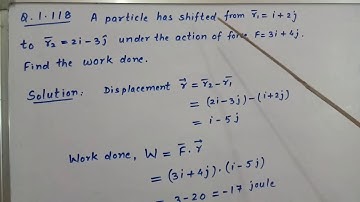 Q.1.118 A particle has shifted from r̄₁ = i+2j
to r̄₂ = 2i-3ĵ under the action of force F=3i+4j.
Find the work done.
Solution: Displacement r⃗ = r̄₂ - r̄₁
= (2i-3j)-(i+2j)
= i-5j
Work done, W = F̄.r⃗
= (3i+4j).(i-5j)
= 3-20 = -17 joule